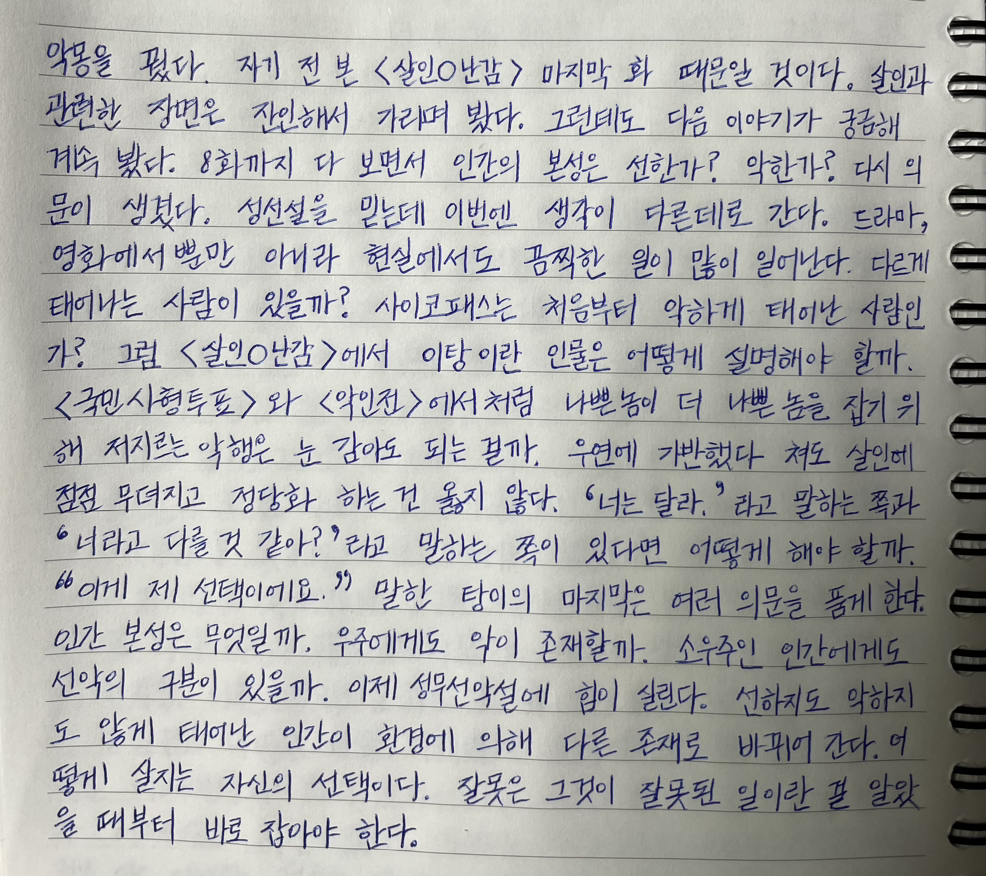 악몽을 꿨다. 자기 전 본 <살인O난감> 마지막 화 때문일 것이다. 살인과
관련한 장면은 잔인해서 가리며 봤다. 그런데도 다음 이야기가 궁금해
계속 봤다. 8화까지 다 보면서 인간의 본성은 선한가? 악한가? 다시 의
문이 생겼다. 성선설을 믿는데 이번엔 생각이 다른데로 간다. 드라마,
영화에서 뿐만 아니라 현실에서도 끔찍한 일이 많이 일어난다. 다르게
태어나는 사람이 있을까? 사이코패스는 처음부터 악하게 태어난 사람인
가? 그럼 <살인O난감>에서 이탕이란 인물은 어떻게 설명해야 할까.
<국민사형투표>와 <악인전>에서처럼 나쁜놈이 더 나쁜 놈을 잡기 위
해 저지르는 악행은 눈 감아도 되는 걸까. 우연에 기반했다 쳐도 살인에
점점 무뎌지고 정당화 하는 건 옳지 않다. '너는 달라.'라고 말하는 쪽과
'너라고 다를 것 같아?'라고 말하는 쪽이 있다면 어떻게 해야 할까.
"이게 제 선택이에요." 말한 탕이의 마지막은 여러 의문을 품게 한다.
인간 본성은 무엇일까. 우주에게도 악이 존재할까. 소우주인 인간에게도
선악의 구분이 있을까. 이제 성무선악설에 힘이 실린다. 선하지도 악하지
도 않게 태어난 인간이 환경에 의해 다른 존재로 바뀌어 간다. 어
떻게 살지는 자신의 선택이다. 잘못은 그것이 잘못된 일이란 걸 알았
을 때부터 바로 잡아야 한다.